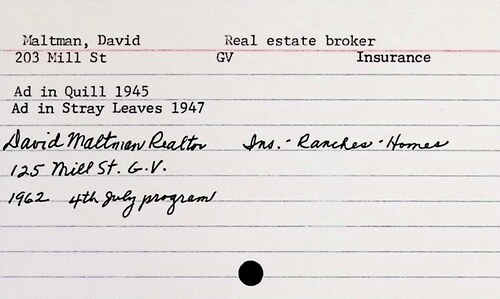 Maltman, David Real estate broker
203 Mill St GV Insurance
Ad in Quill 1945
Ad in Stray Leaves 1947
David Maltman Realtor Ins. - Ranches - Homes
125 Mill St. G.V.
1962 4th July program